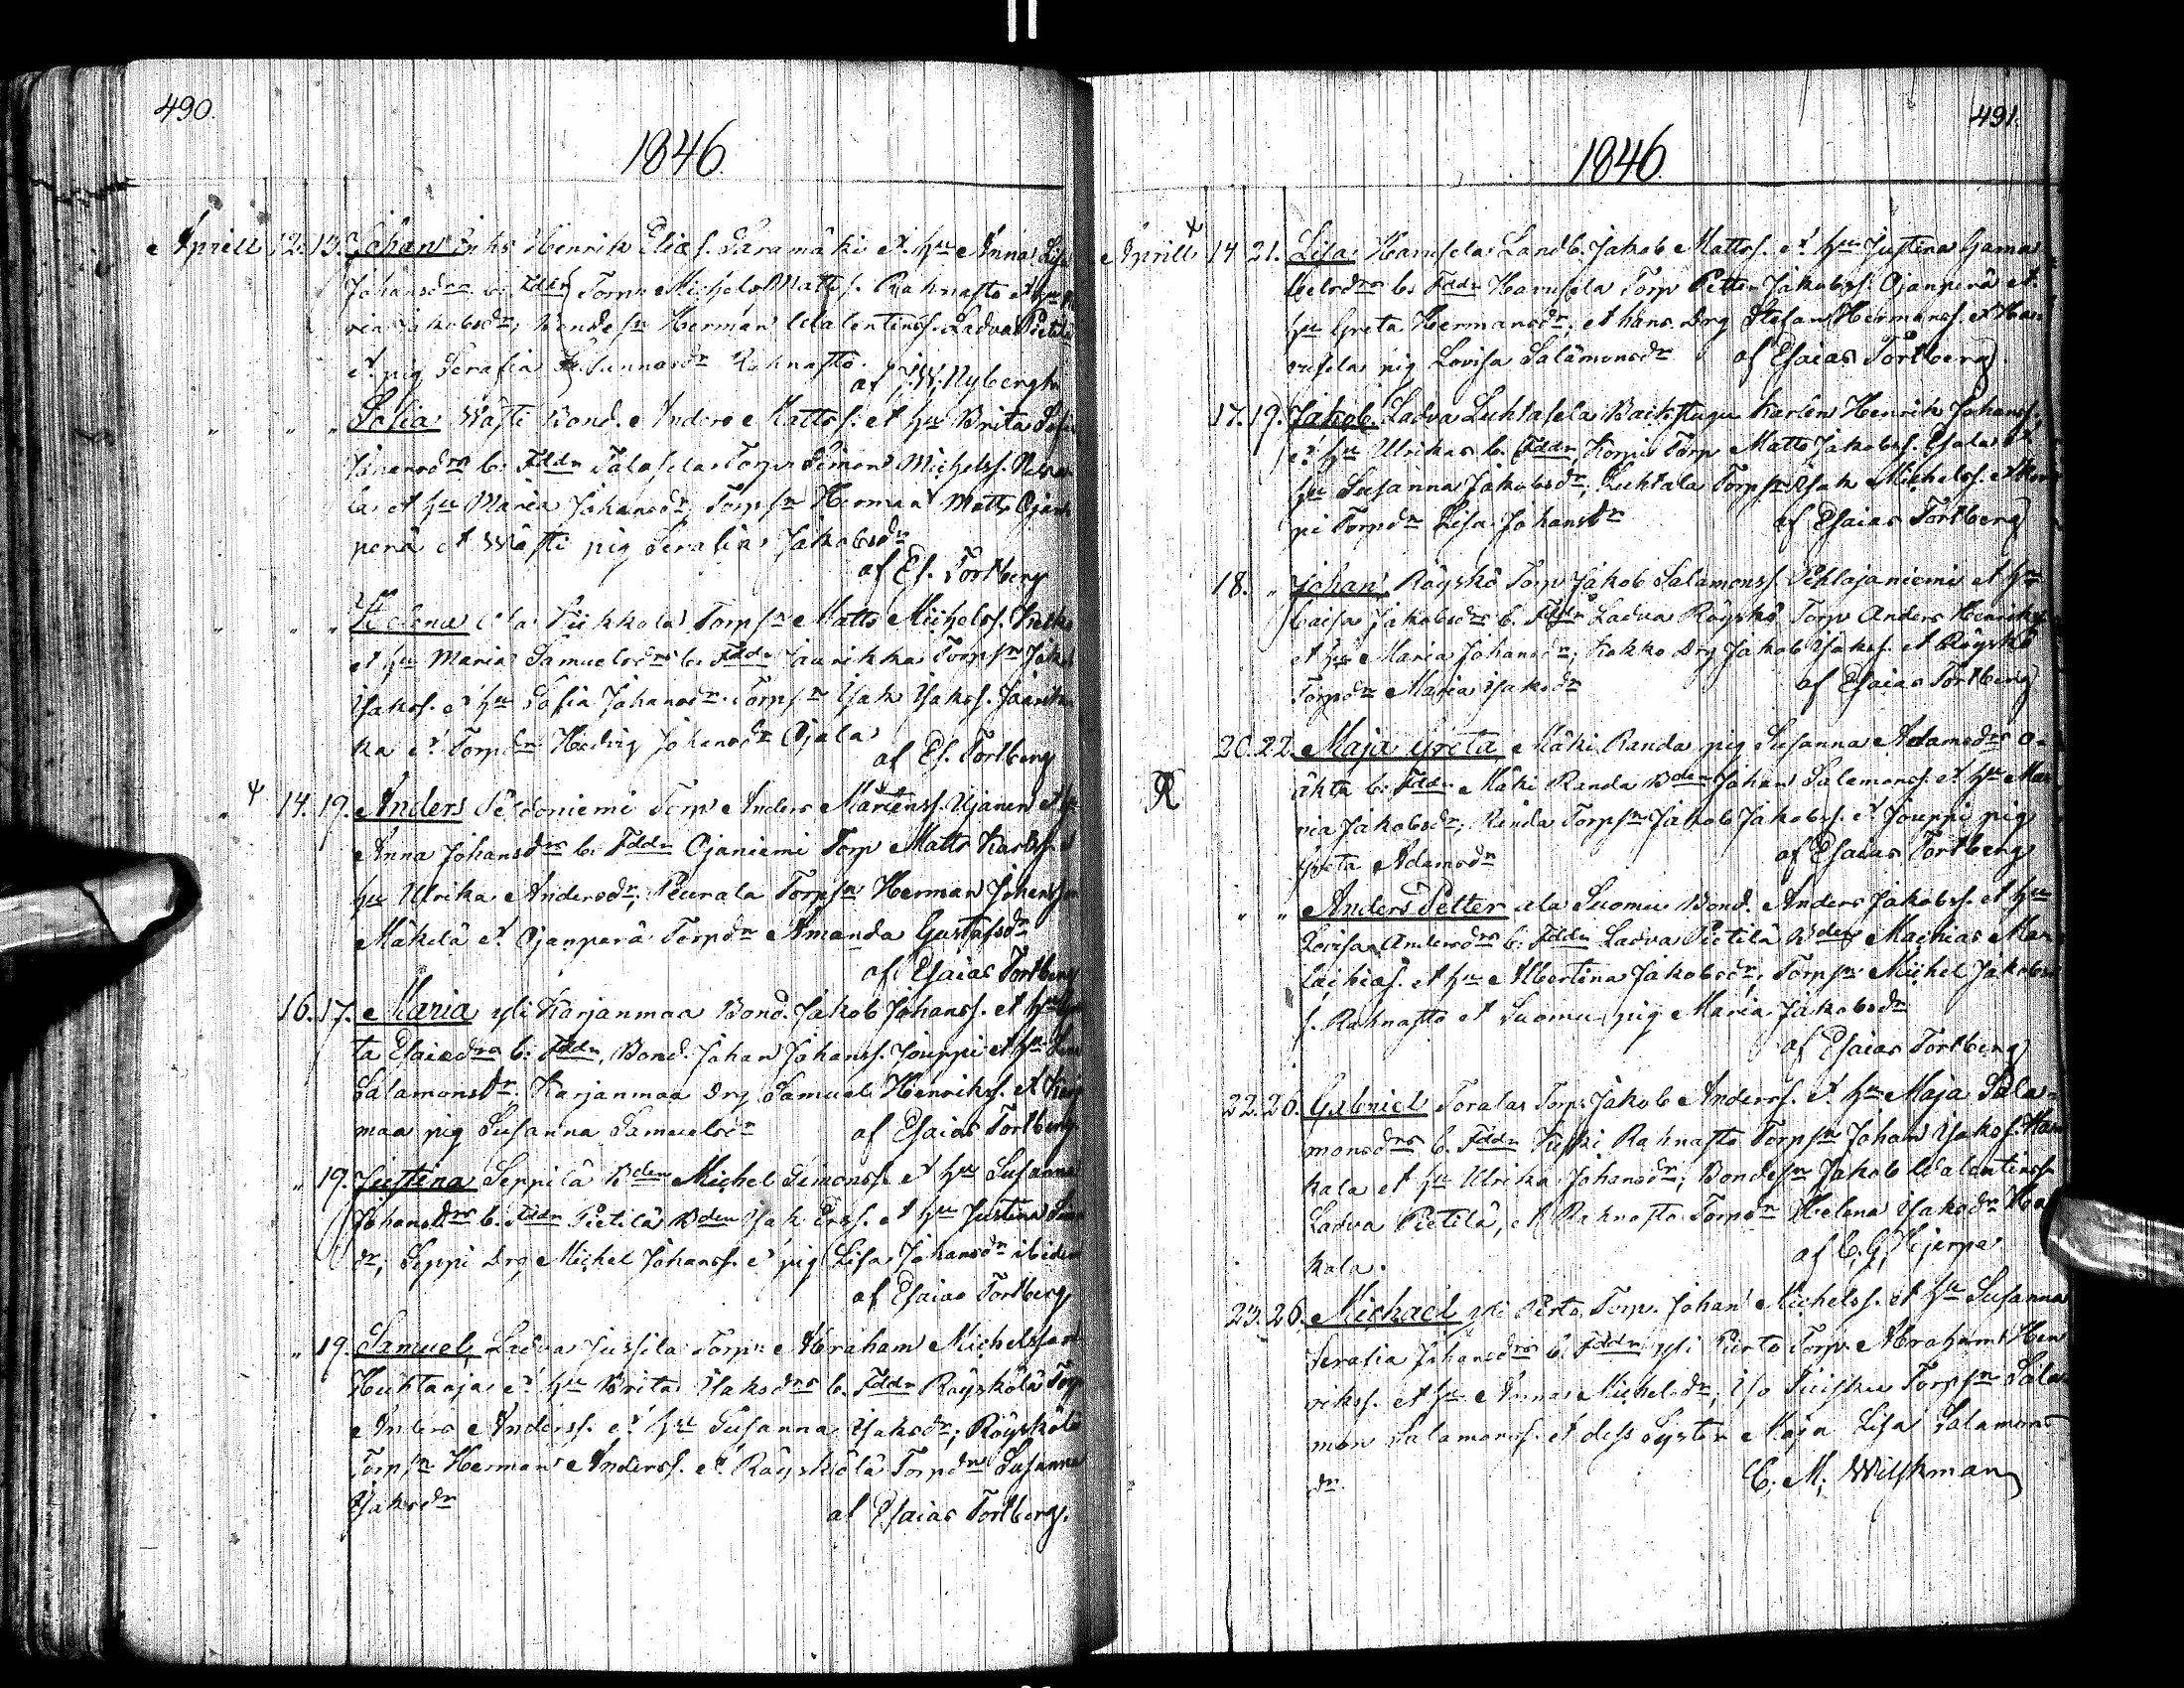 490.
1846.
Aprill 12. 13. Johan Enks Henrik Elias s. Saramäki et hu Anna Lisa
Johansdrs b. Fddr Torp. Michel Matts s. Rahnasto et hu
ria Jakobsdr, Bondesn Herman Walentinss. Ladva Pietilä
et pig Serafia Sunnasdr Rahnasto.
af J. W. Nybergh
" " " Sofia Wästi Bond. Anders Mattss. et hu Brita
Johansdrs b. Fddr Talasela Torp. Simon Michelss.
la et hu Maria Johansdr, Torpsn Herman Matts Ojan
perä et Wästi pig Serafia Jakobsdr
af Es. Tortberg
" " " Helena Ala Tiikkala Torpsn Matts Michelss.
et hu Maria Samuelsdrs b. Fddr Jaurikka Torpsn
Isakss. et hu Sofia Johansdr Torpsn Isak Isakss. Jaurik
ka et Torpdr Hedvig Johansdr Ojala
af Es. Tortberg
" 14. 19. Anders Peldoniemi Torp Anders Mårtenss. Ujanen et hu
Anna Johansdrs b. Fddr Ojaniemi Torp Matts Karlss. et
hu Ulrika Andersdr, Peurala Torpsn Herman Johansson
Mäkelä et Ojanperä Torpdr Amanda Gustafsdr
af Esaias Tortberg
16. 17. Maria yli Karjanmaa Bond. Jakob Johanss. et hu
ta Esaiedrs b. Fddr, Bond. Johan Johanss. Jouppi et hu
Salamonsdr, Karjanmaa Drg Samuel Henrikss. et Karj
maa pig Susanna Samuelsdr af Esaias Tortberg
" 19. Justina Seppilä Bden Michel Simonss. et hu Susanna
Johansdrs b. Fddr Pietilä Bden Isak Erss. et hu Justina
dr, Seppi Drg Michel Johanss. et pig Lisa Johansdr ibidem
af Esaias Tortberg
" 19. Samuel, Ladva Jussila Torp. Abraham Michelsson
Huhtaoja et hu Brita Isaksdrs b. Fddr Röyskölä Torp
Anders Anderss. et hu Susanna Isaksdr; Röyskölä
Torpsn Herman Anderss. et Röyskölä Torpdr Susanna
Isaksdr af Esaias Tortberg.
491.
1846.
Aprill 14 21. Lisa Harusela Landb. Jakob Mattss. et hu Justina Gama
lielsdrs b. Fddr Harusela Torp Petter Jakobss. Ojanperä et
hu Greta Hermansdr, et hans Drg Stefan Hermanss. et Ha
rusela pig Lovisa Salamonsdr af Esaias Tortberg.
17. 19. Jakob Ladva Luhtasela Backstugu karlen Henrik Johanss.
et hu Ulrikas b. Fddr, Korpi Torp Matts Jakobss. Ojala et
hu Susanna Jakobsdr, Luhtala Torpsn Isak Michelss. et Kor
pi Torpdr Lisa Johansdr af Esaias Tortberg
18. " Johan Röyskö Torp Jakob Salamonss. Pihlajaniemi et hu
Caisa Jakobsdrs b. Fddr Ladva Röyskö Torp Anders Henrikss.
et hu Maria Johansdr, Kokko Drg Jakob Isakss. et Röyskö
Torpdr Maria Isaksdr af Esaias Tortberg
20. 22. Maja Greta Mäki Randa pig Susanna Adamsdrs o-
äkta b. Fddr Mäki Randa Bden Johan Salamonss. et hu Ma
ria Jakobsdr, Rinda Torpsn Jakob Jakobss. et Jouppi pig
Greta Adamsdr af Esaias Tortberg
" " Anders Petter ala Suomu Bond. Anders Jakobss. et hu
Lovisa Andersdrs b. Fddr Ladva Pietilä Bden Mathias Ma
lachias. et hu Albertina Jakobsdr, Torpsn Michel Jakobs
s. Rahnasto et Suomu pig Maria Jakobsdr
af Esaias Tortberg
22. 26. Gabriel Torala Torp. Jakob Anderss. et hu Maja Sala
monsdrs b. Fddr Rahnasto Torpsn Johan Isakss. Ham
kala et hu Ulrika Johansdr, Bondesn Jakob Walentinss.
Ladva Pietilä, et Rahnasto Torpdr Helena Isaksdr Ha
kala. af C. G. Hjerpe
23. 26. Michael yli Pirto Torp. Johan Michelss. et hu Susanna
Serafia Johansdrs b. Fddr yli Pirto Torp. Abraham Hen
rikss. et hu Anna Michelsdr, Iso Torpsn Salo
mon Salamonss. et dess Syster Maja Lisa Salamons
dr. C. M. Wilskman